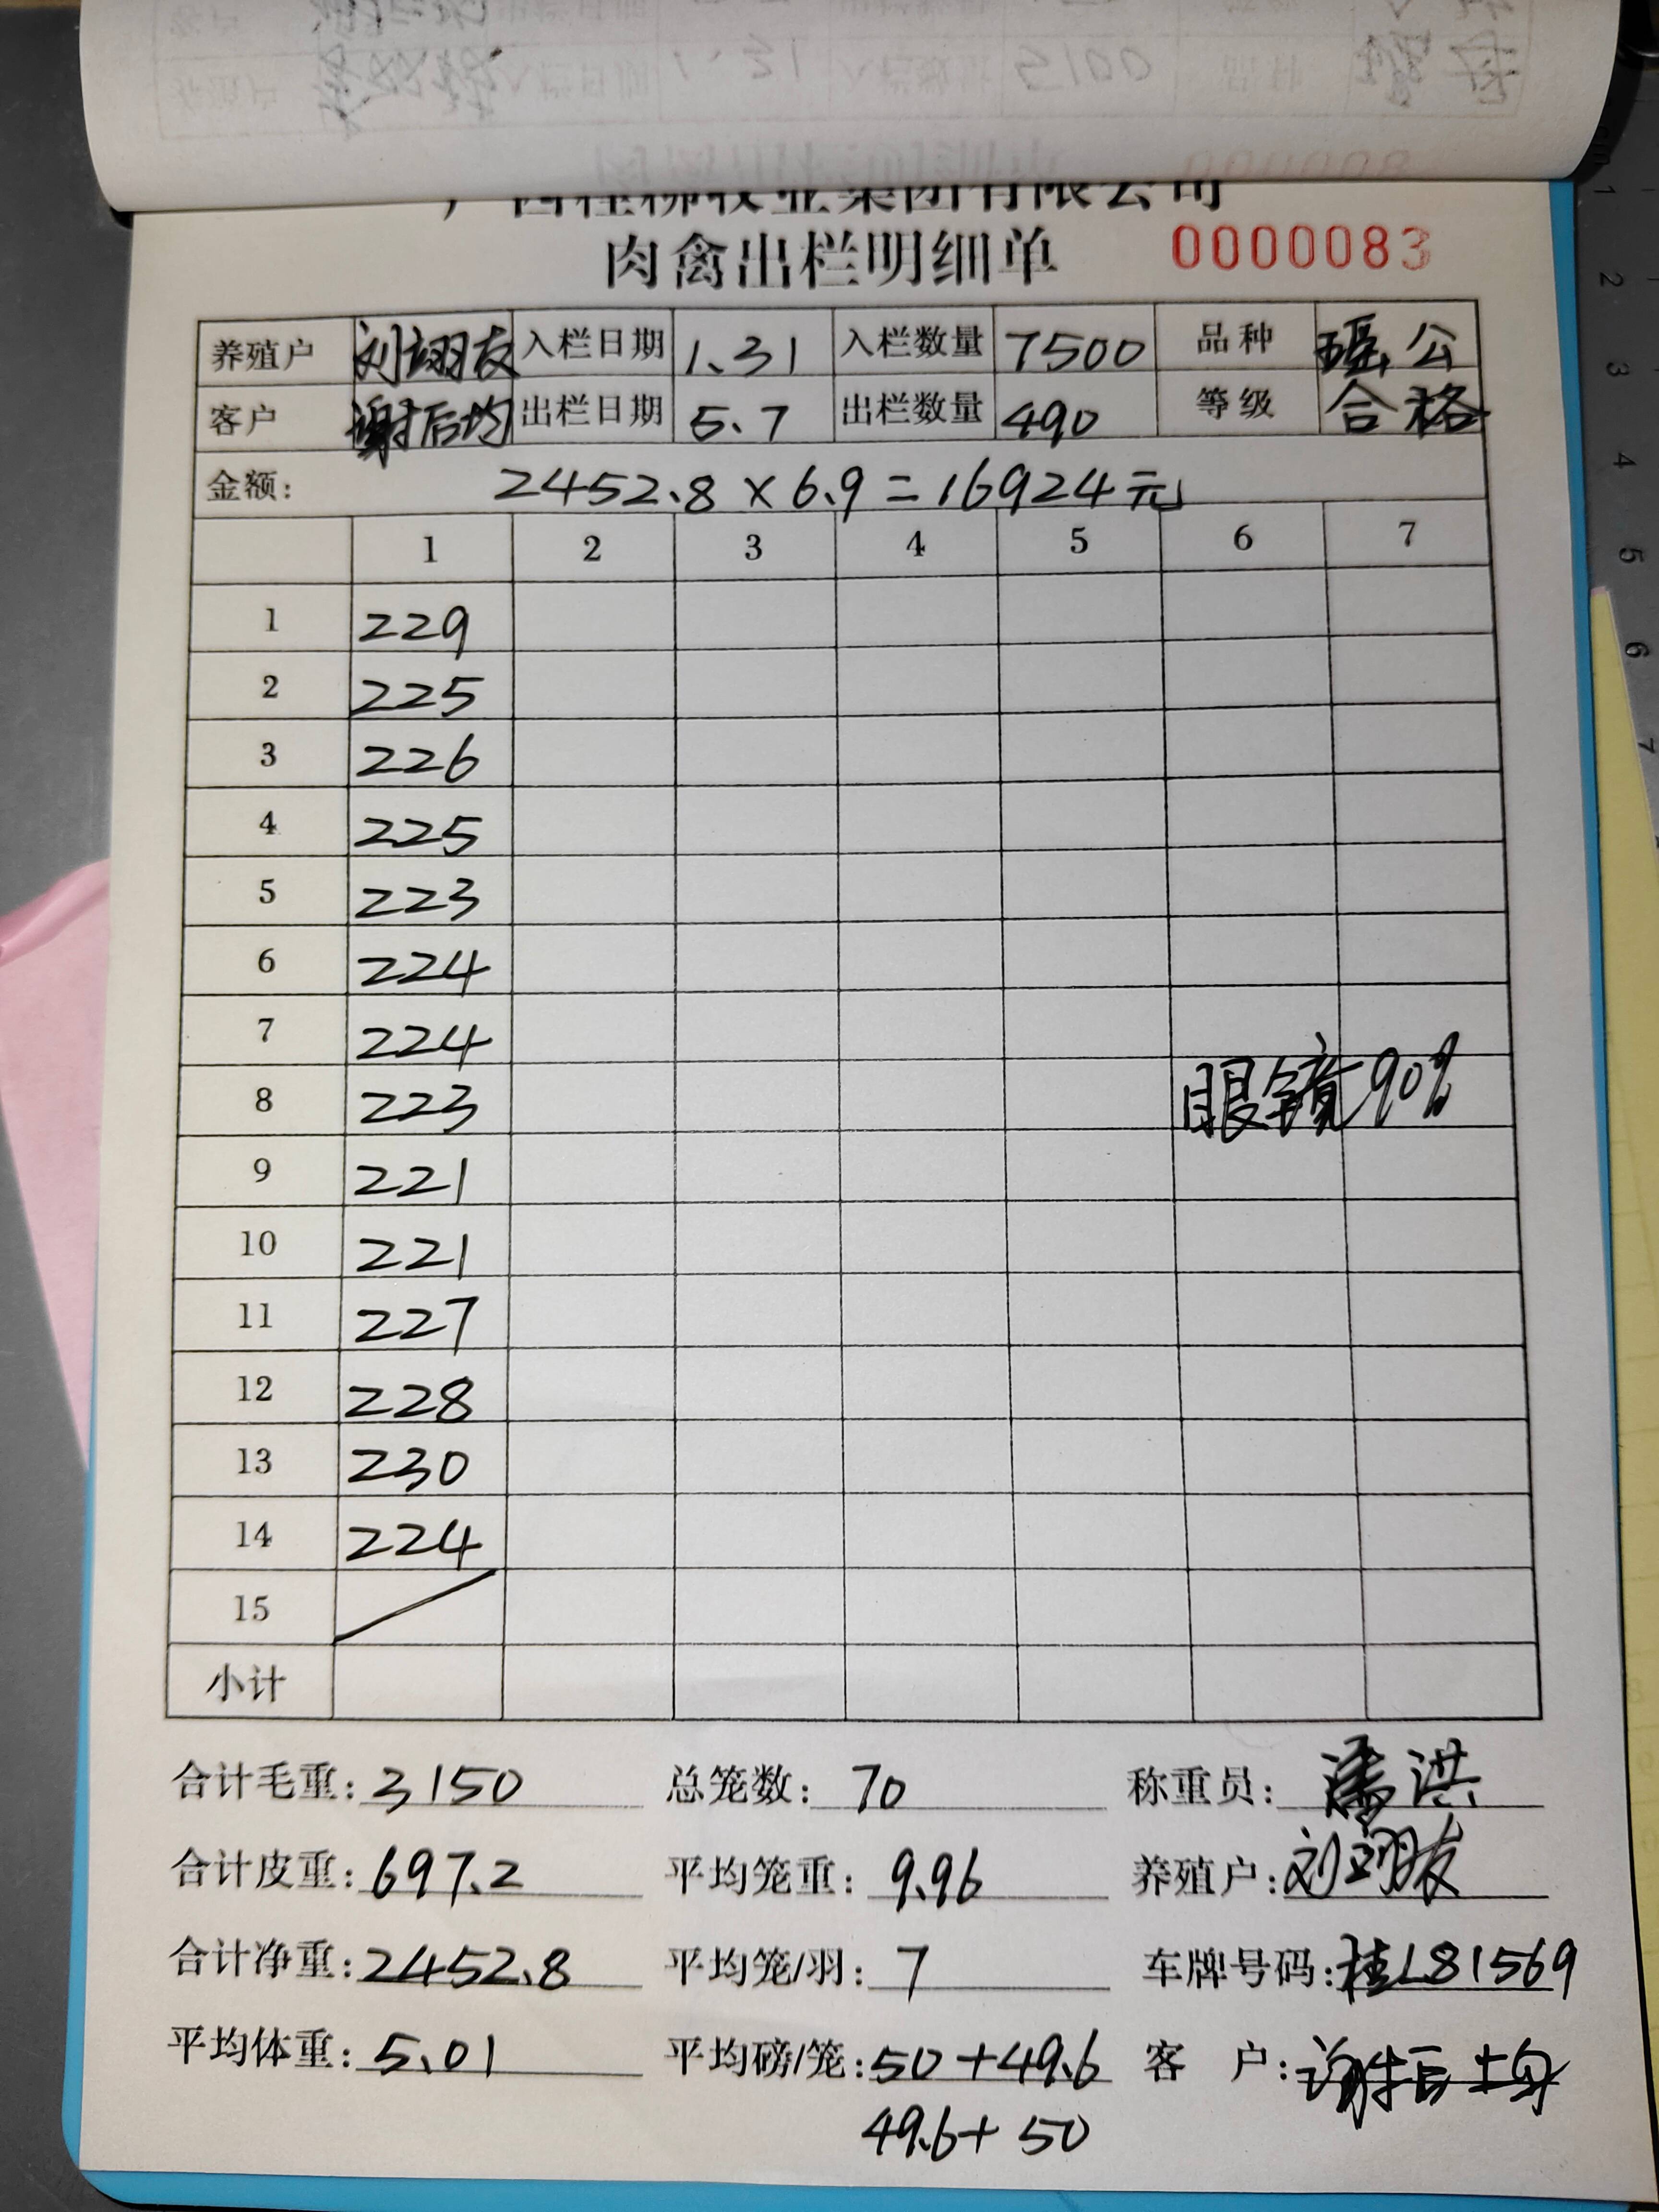 广西桂柳牧业集团有限公司
肉禽出栏明细单 0000083
养殖户 刘翊友 入栏日期 1.31 入栏数量 7500 品种 瑶公
客户 谢后均 出栏日期 5.7 出栏数量 490 等级 合格
金额: 2452.8×6.9=16924元
1 2 3 4 5 6 7
1 229
2 225
3 226
4 225
5 223
6 224
7 224
8 223 眼镜90%
9 221
10 221
11 227
12 228
13 230
14 224
15
小计
合计毛重: 3150 总笼数: 70 称重员: 潘洪
合计皮重: 697.2 平均笼重: 9.96 养殖户: 刘翊友
合计净重: 2452.8 平均笼/羽: 7 车牌号码: 桂L81569
平均体重: 5.01 平均磅/笼: 50+49.6 客 户: 谢后均
49.6+50